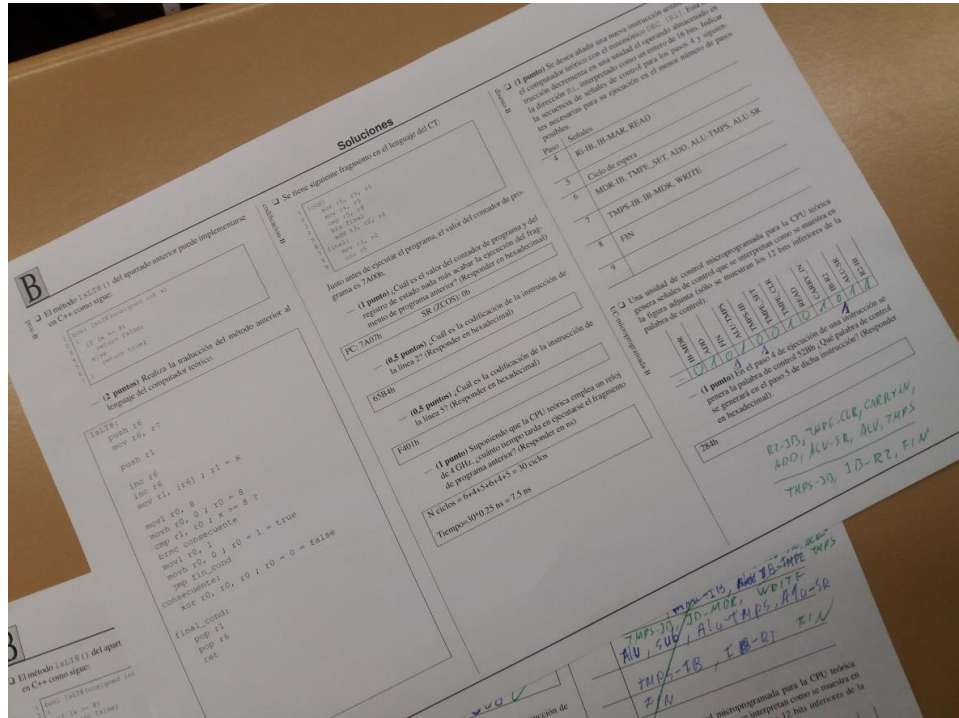 Soluciones
B
pila-B
❑ El método IsLT8() del apartado anterior puede implementarse
en C++ como sigue:
1 bool IsLT8(unsigned int x)
2 {
3 if (x >= 8)
4 return false;
5 else
6 return true;
7 }
— (2 puntos) Realiza la traducción del método anterior al
lenguaje del computador teórico.
IsLT8:
push r6
mov r6, r7
push r1
inc r6
inc r6
mov r1, [r6] ; r1 = x
movl r0, 8
movh r0, 0 ; r0 = 8
cmp r1, r0 ; x >= 8 ?
brnc consecuente
movl r0, 1
movh r0, 0 ; r0 = 1 = true
jmp fin_cond
consecuente:
xor r0, r0, r0 ; r0 = 0 = false
final_cond:
pop r1
pop r6
ret
codificacion-B
❑ Se tiene siguiente fragmento en el lenguaje del CT:
1 loop:
2 xor r5, r5, r5
3 mov r4, r5
4 cmp r5, r4
5 brz final
6 add r3, r2, r2
7 final:
8 mov r3, r2
9 inc r5
Justo antes de ejecutar el programa, el valor del contador de pro-
grama es 7A00h.
— (1 punto) ¿Cuál es el valor del contador de programa y del
registro de estado nada más acabar la ejecución del frag-
mento de programa anterior? (Responder en hexadecimal)
PC: 7A07h SR (ZCOS): 0h
— (0,5 puntos) ¿Cuál es la codificación de la instrucción de
la línea 2? (Responder en hexadecimal)
65B4h
— (0,5 puntos) ¿Cuál es la codificación de la instrucción de
la línea 5? (Responder en hexadecimal)
F401h
— (1 punto) Suponiendo que la CPU teórica emplea un reloj
de 4 GHz, ¿cuánto tiempo tarda en ejecutarse el fragmento
de programa anterior? (Responder en ns)
N ciclos = 6+4+5+6+4+5 = 30 ciclos
Tiempo=30*0.25 ns = 7,5 ns
❑ (1 punto) Se desea añadir una nueva instrucción
el computador teórico con el mnemónico DEC [Ri]. Esta
trucción decrementa en una unidad el operando almacenado en
la dirección Ri, interpretado como un entero de 16 bits. Indicar
la secuencia de señales de control para los pasos 4 y siguien-
tes necesarias para su ejecución en el menor número de pasos
posibles.
Paso Señales
4 Ri-IB, IB-MAR, READ
5 Ciclo de espera
6 MDR-IB, TMPE_SET, ADD, ALU-TMPS, ALU-SR
7 TMPS-IB, IB-MDR, WRITE
8 FIN
9
UC-microprogramada-B
❑ Una unidad de control microprogramada para la CPU teórica
genera señales de control que se interpretan como se muestra en
la figura adjunta (sólo se muestran los 12 bits inferiores de la
palabra de control).
IB-MDR ADD FIN ALU-TMPS TMPS-IB TMPE_SET TMPE_CLR READ CARRY_IN IB-R2 ALU-SR R2-IB
... 0 1 0 1 0 0 1 0 1 0 1 1
— (1 punto) En el paso 4 de ejecución de una instrucción se
genera la palabra de control 52Bh ¿Qué palabra de control
se generará en el paso 5 de dicha instrucción? (Responder
en hexadecimal).
284h
R2-IB, TMPE-CLR, CARRY-IN,
ADD, ALU-SR, ALU, TMPS
TMPS-IB, IB-R2, FIN
TMPS-IB, IB-MDR, WRITE
ALU, SUB, Alu-TMPS, Alu-SR
TMPS-IB, IB-R2 FIN
FIN
❑ El método IsLT8() del apart
en C++ como sigue:
bool IsLT8(unsigned int
microprogramada para la CPU teórica
interpretan como se muestra en
12 bits inferiores de la